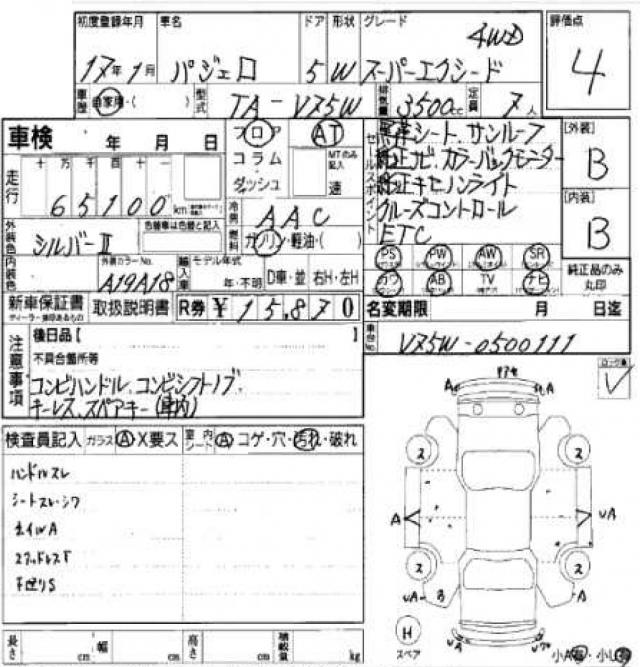 初度登録年月 車名 ドア 形状 グレード 評価点
17年1月 パジェロ 5 W スーパーエクシード 4WD 4
車歴 自家用・( ) 型式 TA-V75W 排気量 3500cc 定員 7人
車検 年 月 日
フロア AT
コラム MTのみ記入
ダッシュ 速
セールスポイント
革シート、サンルーフ
純正ナビ、カラーバックモニター
純正キセノンライト
クルーズコントロール
ETC
[外装] B
[内装] B
走行 十万千百十一
65100km
冷房 AAC
燃料 ガソリン・軽油・( )
外装色 シルバーII 色替車は色替と記入
内装色 外装カラーNo. A19A18
輸入車 モデル年式 年・不明 D車・並 右H・左H
PS PW AW SR
カワ AB TV ナビ
純正品のみ丸印
新車保証書 取扱説明書 R券 ¥15,870
ディーラー・捺印あるもの
名変期限 月 日迄
車台No. V75W-0500111
注意事項
後日品【 】
不具合箇所等
コンビハンドル、コンビシフトノブ、
キーレス、スペアキー(車内)
検査員記入 ガラス A X要ス 室内シート A コゲ・穴・汚れ・破れ
ハンドルスレ
シートスレ・シワ
下廻りS
長さ cm 幅 cm 高さ cm 積載量 kg
A A
2 2
A UA
2 2
UA B A
H
スペア
小A・小U